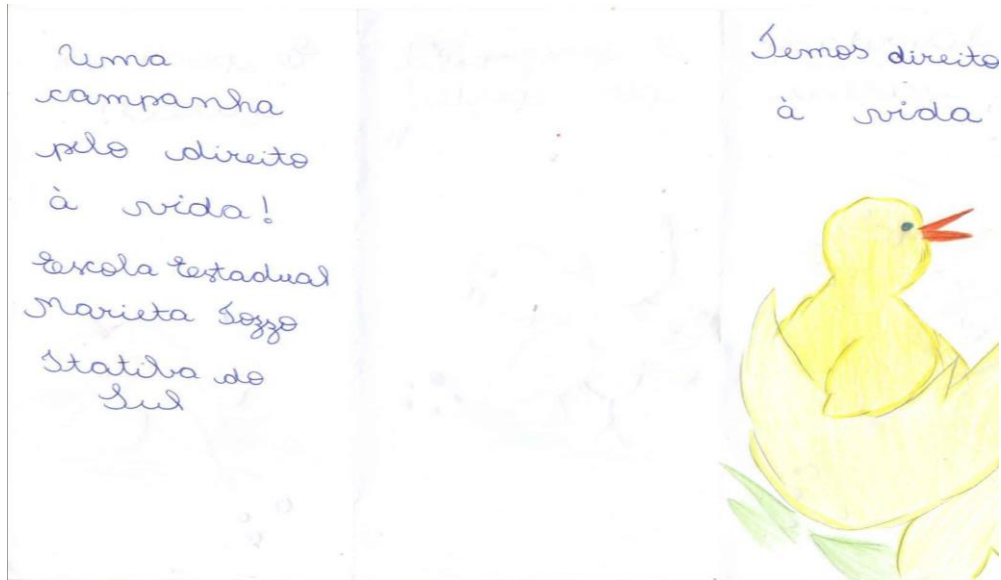 Uma
campanha
pelo direito
à vida!
Escola Estadual
Marieta Tozzo
Itatiba do
Sul
Temos direito
à vida